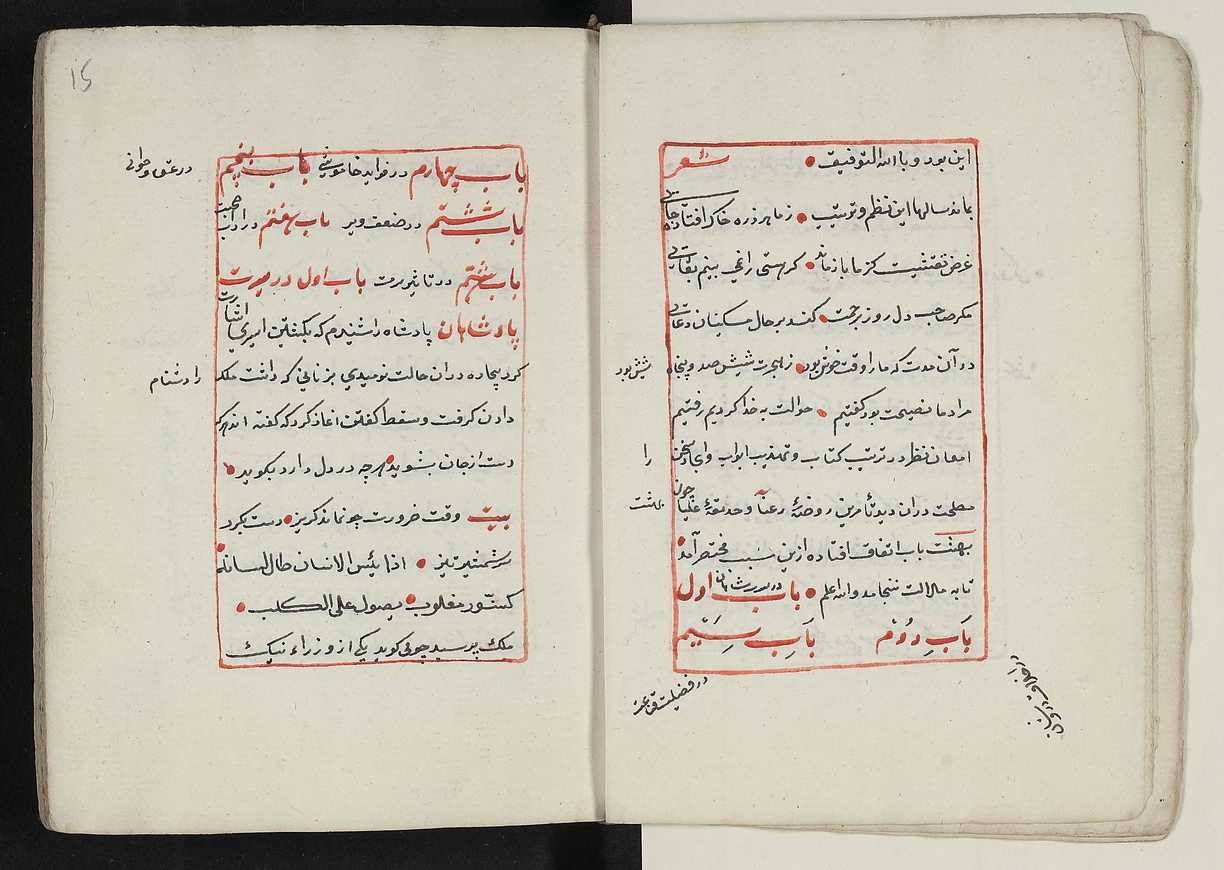 این بود و باالله التوفیق • شعر
بماند سالها این نظم و ترتیب • زما هر ذره خاک افتاد جائی
غرض نقشیست کز ما باز ماند • که هستی را نمی بینم بقائی
مکر صاحب دل روز برحمت • کند بر حال مسکینان دعائی
در آن مدت که ما را وقت خوش بود • ز هجرت شیش صد و پنجاه شیش بود
مراد ما نصیحت بود کفتیم • حوالت به خدا کردیم رفتیم
امعان نظر در ترتیب کتاب و تهذیب ابواب و ایجاز سخن را
مصلحت دران دید تا مرین روضهٔ رعنا و حدیقهٔ غلبا چون بهشت
بهشت باب اتفاق افتاده ازین سبب مختصر آمد •
تا به ملالت ننجامد والله اعلم • باب اول در سیرت پادشاهان
باب دوم در اخلاق درویشان باب سیّم در فضیلت قناعت
15
باب چهارم در فواید خاموشی باب پنجم در عشق و جوانی
باب ششتم در ضعف و پیر باب هفتم در اداب صحبت
باب هشتم در تاثیر تربیت باب اول در سیرت
پادشاهان پادشاه را شنیدم که بکشتن اسیری اشارت
کرد بیچاره دران حالت نومیدی بزبانی که داشت ملک را دشنام
دادن کرفت و سقط کفتن اغاز کرد که کفته اند هرکه
دست از جان بشوید • هرچه در دل دارد بکوید •
بیت وقت ضرورت چو نماند کریز • دست بکیرد
سر شمشیر تیز • اذا یئس الانسان طال لسانه •
کسنّور مغلوب • یصول علی الکلب •
ملک پرسید چوئی کوید یکی از وزراء نیک